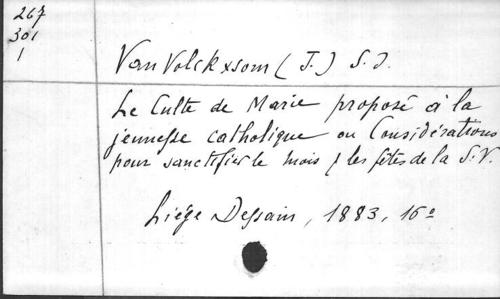 267
301
1
Van Volckxsom (J.) S.J.
Le Culte de Marie proposé à la
jeunesse catholique ou Considérations
pour sanctifier le mois & les fêtes de la S.V.
Liége Dessain, 1883, 16°